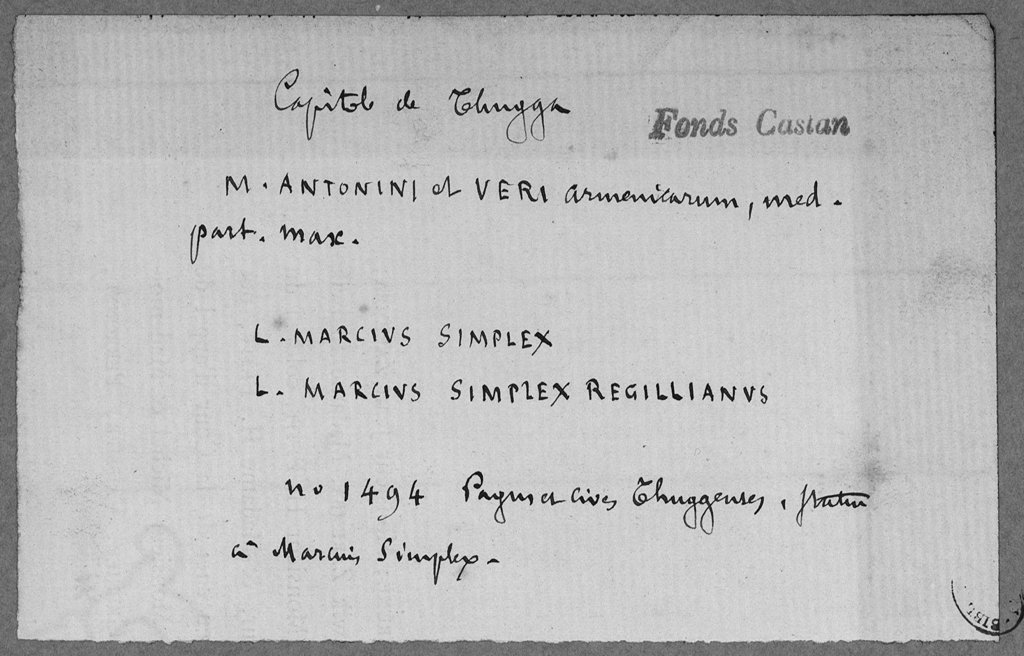 Capitole de Thugga
Fonds Castan
M. ANTONINI et VERI armenicarum, med.
part. max.
L. MARCIVS SIMPLEX
L. MARCIVS SIMPLEX REGILLIANVS
no 1494 Pagus et cives Thuggenses, statue
à Marcius Simplex.
BIBL